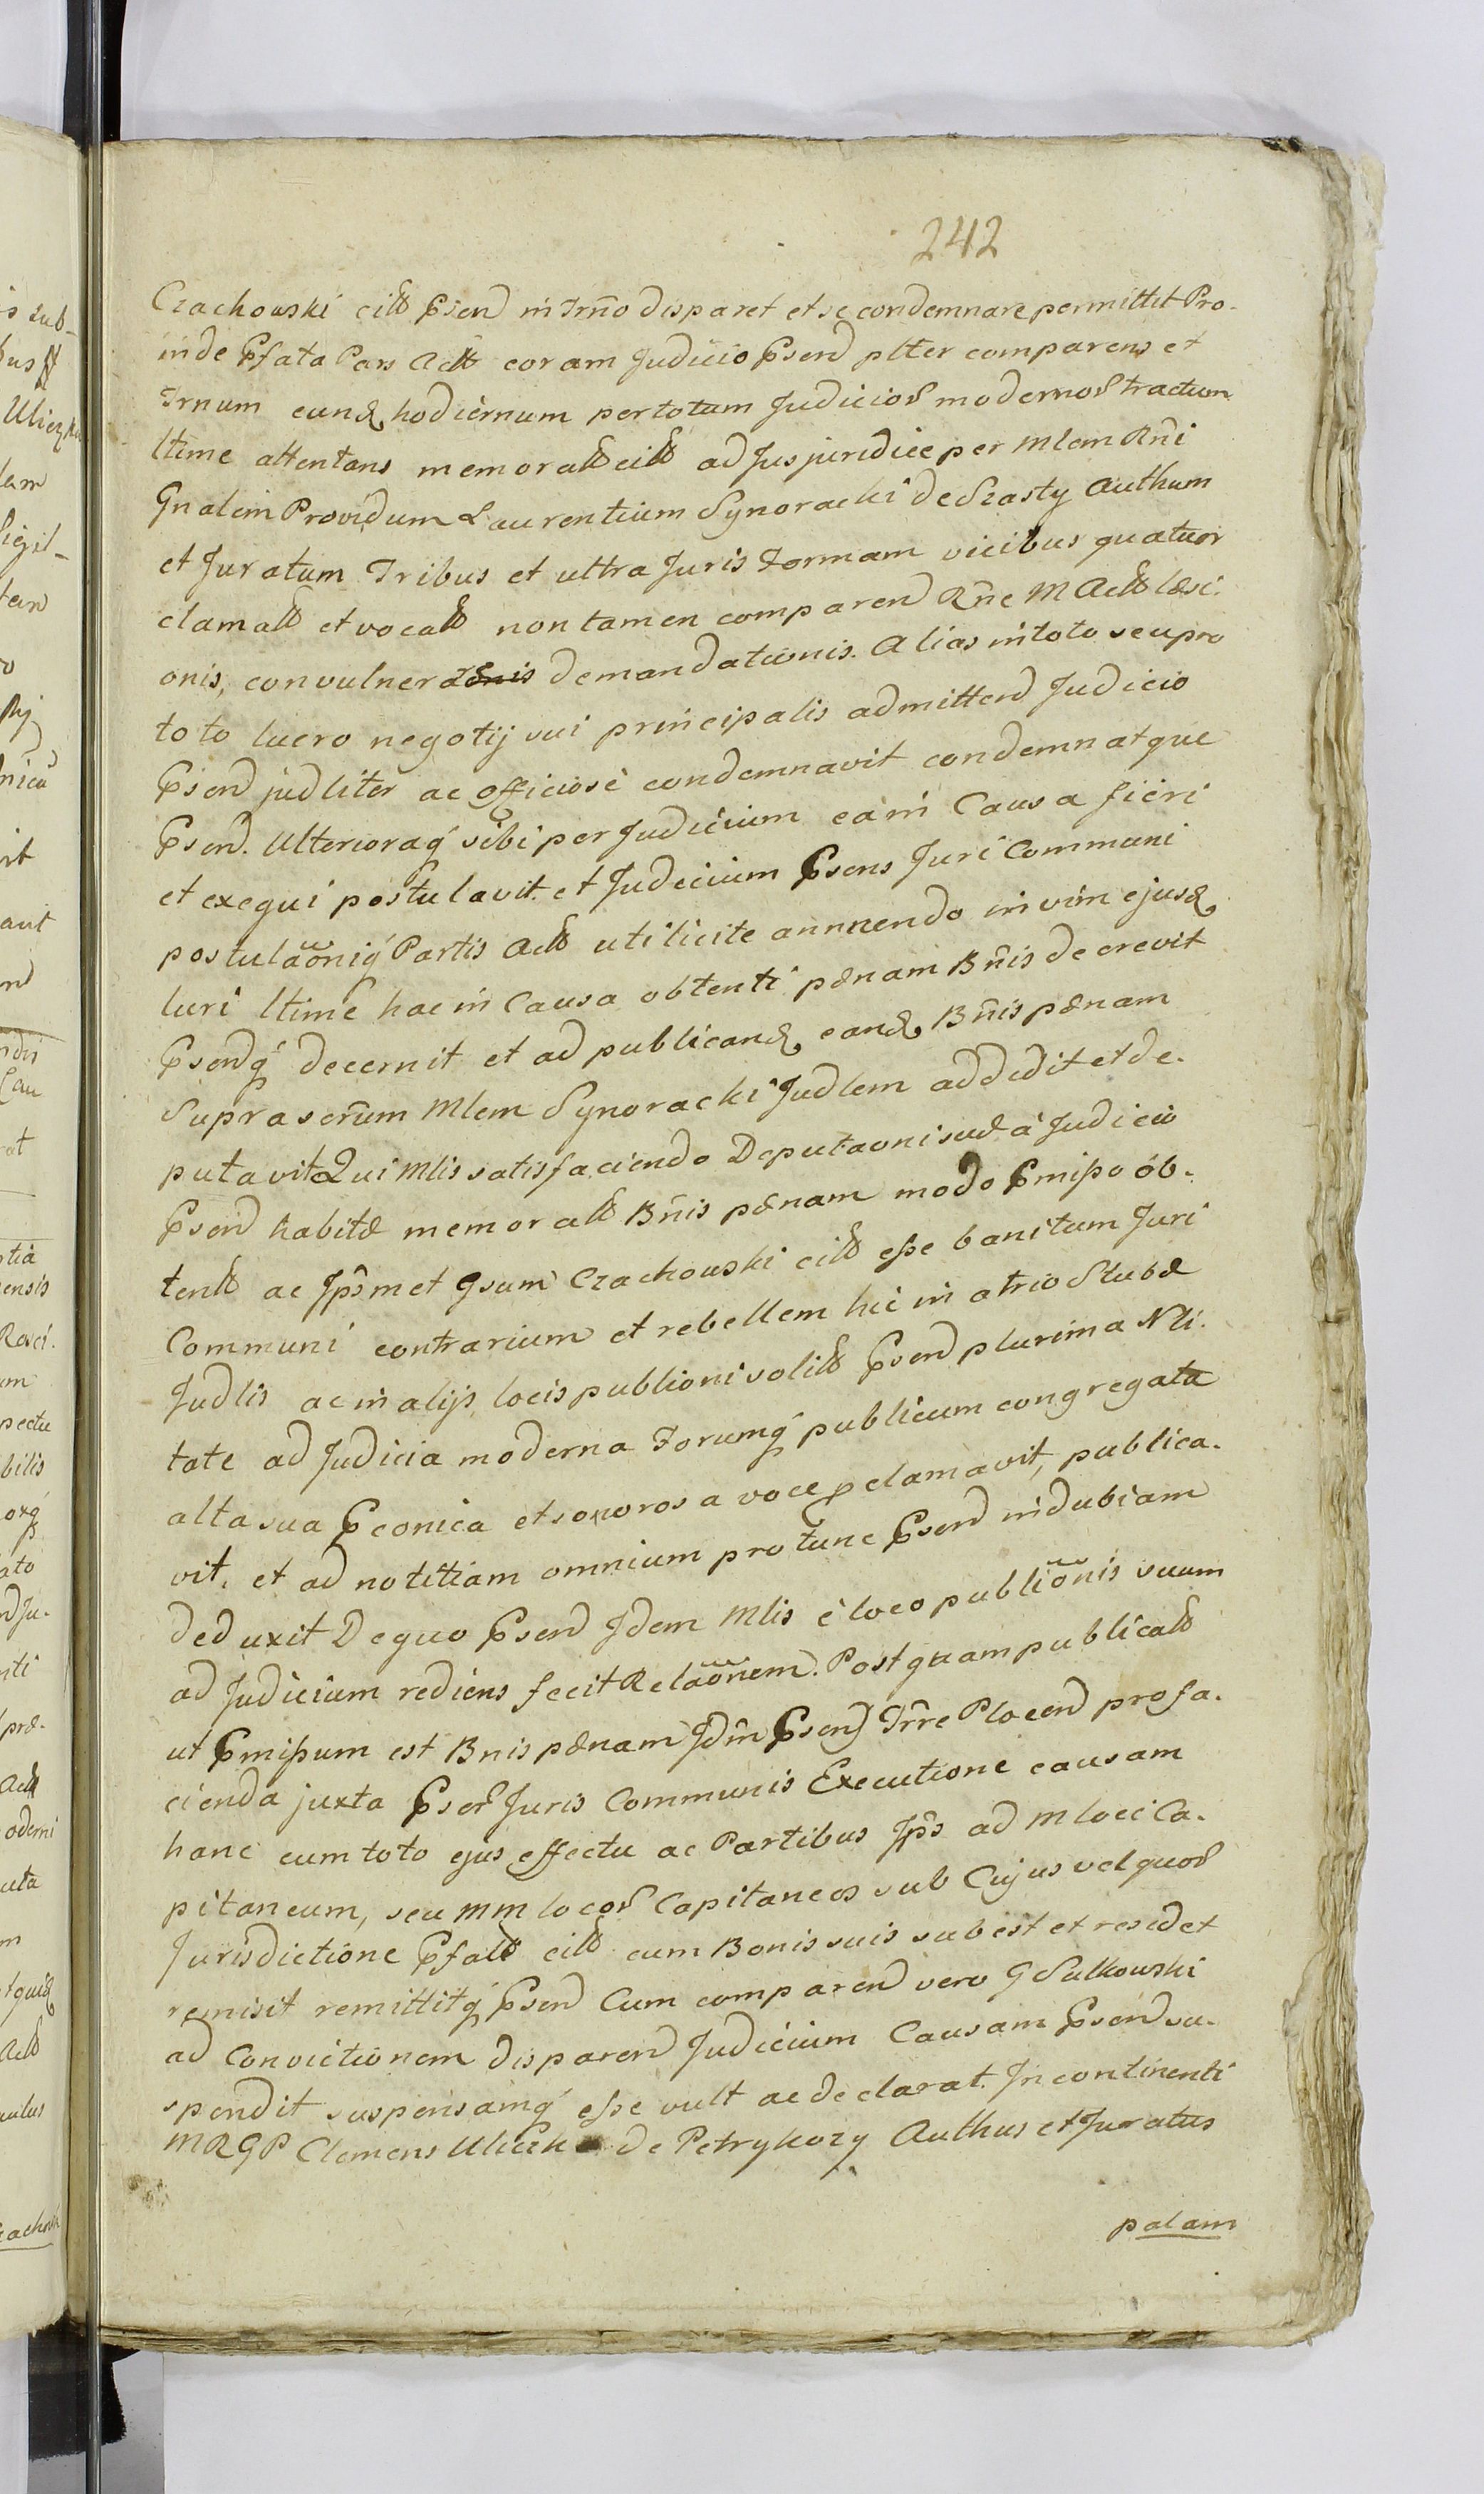 242
Czachowski citt Psend in Trno disparet et se condemnare permittit Pro-
inde Psata Pars Actt coram Judicio Psend plter comparens et
Trnum eund hodiernum per totum Judicior modernor tractum
ltime attentans memoratt citt ad Jus juridice per Mlem Rni
Gnalem Providum Laurentium Synoracki de Szasty Authum
et Juratum Tribus et ultra Juris Formam vicibus quatuor
clamatt et vocatt non tamen comparend Rne M Actt læsi-
onis, convulneraonis demandationis. Alias in toto seu pro
toto lucro negotij sui principalis admittend Judicio
Psend judliter ac officiose condemnavit condemnatque
Psend. Ulterioraq sibi per Judicium ea in Causa fieri
et exequi postulavit. et Judicium Psens Juri Communi
postulaoniq Partis Actt uti licite annuendo in vim ejusd
lucri ltime hac in Causa obtenti pænam Bnis decrevit
Psendq decernit et ad publicand eand Bnis pænam
Suprascrum Mlem Synoracki Judlem addidit et de-
putavit Qui Mlis satisfaciendo Deputaoni suæ à Judicio
Psend habitæ memoratt Bnis pænam modo Pmisso ob-
tentt ac Jpsmet Gsum Czachowski citt esse banitum Juri
Communi contrarium et rebellem hic in atrio Stubæ
Judlis ac in alijs locis publioni solitt Psend plurima Nli-
tate ad Judicia moderna Forumq publicum congregata
alta sua Pconica et sonorosa voce pclamavit, publica-
vit, et ad notitiam omnium pro tunc Psend indubiam
deduxit De quo Psend Jdem Mlis è loco publionis suum
ad Judicium rediens fecit Relaonem. Postquam publicatt
ut Pmissum est Bnis pænam Jdm Psend Trre Plocend pro fa-
cienda juxta Pscr Juris Communis Executione causam
hanc cum toto ejus effectu ac Partibus Jps ad M loci Ca-
pitaneum, seu MM locor Capitaneos sub Cujus vel quor
Jurisdictione Psatt citt cum Bonis suis subest et residet
remisit remittitq Psend Cum comparend vero G Sulkowski
ad Convictionem disparend Judicium Causam Psend su-
spendit suspensamq esse vult ac declarat. In continenti
MRGP Clemens de Petrykozy Authus et Juratus
palam